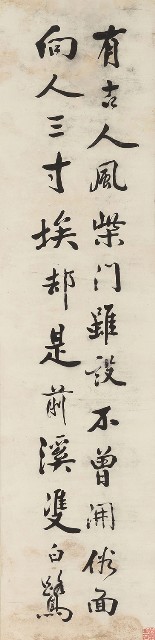 有古人風柴門雖設不曾開俗面
向人三寸埃却是前溪雙白鷺